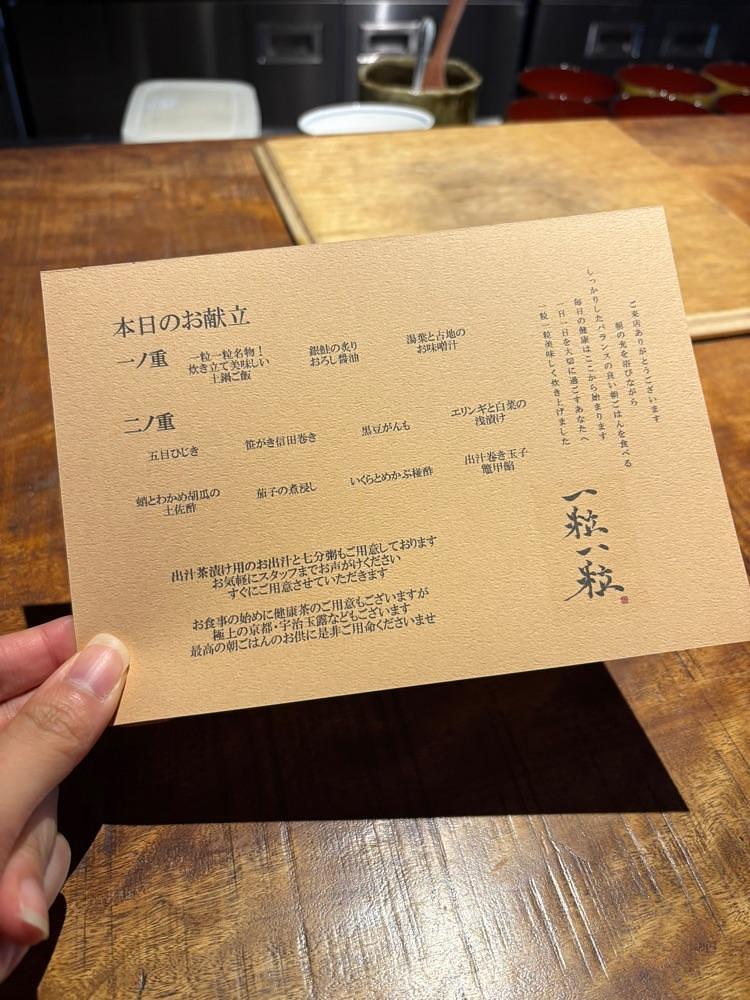 本日のお献立
一ノ重
一粒一粒名物！
炊き立て美味しい
土鍋ご飯
銀鮭の炙り
おろし醤油
湯葉と古地の
お味噌汁
二ノ重
五目ひじき
笹がき信田巻き
黒豆がんも
エリンギと白菜の
浅漬け
蛸とわかめ胡瓜の
土佐酢
茄子の煮浸し
いくらとめかぶ椪酢
出汁巻き玉子
鼈甲餡
出汁茶漬け用のお出汁と七分粥もご用意しております
お気軽にスタッフまでお声がけください
すぐにご用意させていただきます
お食事の始めに健康茶のご用意もございますが
極上の京都・宇治玉露などもございます
最高の朝ごはんのお供に是非ご用命くださいませ
ご来店ありがとうございます
朝の光を浴びながら
しっかりしたバランスの良い朝ごはんを食べる
毎日の健康はここから始まります
一日一日を大切に過ごすあなたへ
一粒一粒美味しく炊き上げました
一粒一粒